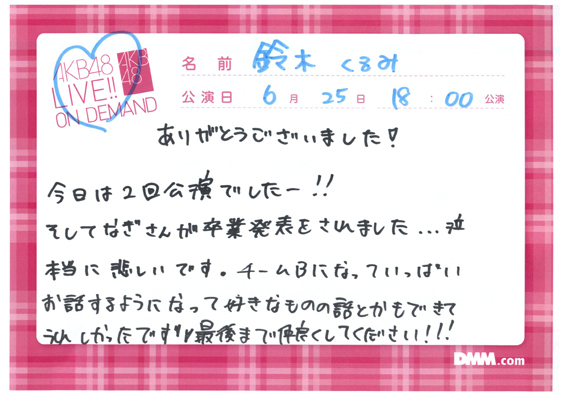 AKB48
LIVE!!
ON DEMAND
AKB
48
名前 鈴木くるみ
公演日 6月25日 18:00公演
ありがとうございました!
今日は2回公演でしたー!!
そしてなぎさんが卒業発表をされました...泣
本当に悲しいです。チームBになっていっぱい
お話するようになって好きなものの話とかもできて
うれしかったです 最後まで仲良くしてください!!!
DMM.com